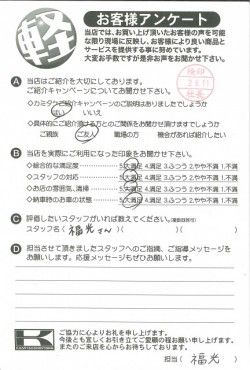 軽
お客様アンケート
当店では、お買い上げ頂いたお客様の声を可能
な限り現場に反映し、お客様により良い商品と
サービスを提供する事に努めています。
大変お手数ですが是非お声をお聞かせ下さい。
A 当店はご紹介を大切にしております。
ご紹介キャンペーンについてお聞かせ下さい。
◇カミタケご紹介キャンペーンのご説明はありましたでしょうか
はい いいえ
◇具体的にご紹介頂ける方とのご関係をお聞かせ頂けますでしょうか
ご親族 ご友人 職場の方 機会があれば紹介したい
B 当店を実際にご利用になった印象をお聞かせ下さい。
◇総合的な満足度 5.大満足 4.満足 3.ふつう 2.やや不満 1.不満
◇スタッフの対応 5.大満足 4.満足 3.ふつう 2.やや不満 1.不満
◇お店の雰囲気、清掃 5.大満足 4.満足 3.ふつう 2.やや不満 1.不満
◇納車時のお車の状態 5.大満足 4.満足 3.ふつう 2.やや不満 1.不満
C 評価したいスタッフがいれば教えてください。(複数回答可)
スタッフ名( 福光さん )( )
D 担当させて頂きましたスタッフへのご指摘、ご指導メッセージを
お願いします。応援メッセージもぜひ!お願い致します。
K
ご協力に心よりお礼を申し上げます。
今後とも宜しくお引き立てご愛顧の程お願い申し上げます。
またのご来店を心からお待ちしております。
担当( 福光 )